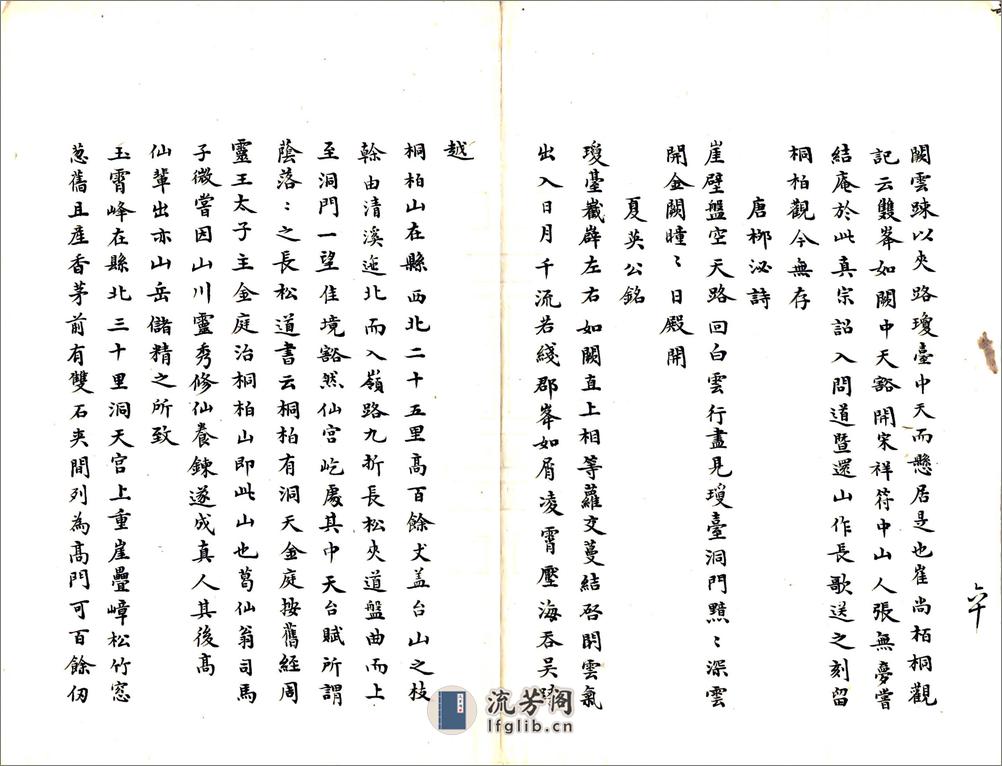 闕雲踈以夾路瓊臺中天而懸居是也崔尚栢桐觀
記云雙峯如闕中天豁開宋祥符中山人張無夢嘗
結庵於此真宗詔入問道暨還山作長歌送之刻留
桐柏觀今無存
唐栁泌詩
崖壁盤空天路回白雲行盡見瓊臺洞門黯〻深雲
開金闕曈〻日殿開
夏英公銘
瓊臺巀嶭左右如闕直上相等蘿交蔓結啓閉雲氣
出入日月千流若綫郡峯如屑凌霄壓海吞吳
越
桐柏山在縣西北二十五里高百餘丈盖台山之枝
榦由清溪迤北而入嶺路九折長松夾道盤曲而上
至洞門一望佳境豁然仙宫屹處其中天台賦所謂
蔭落〻之長松道書云桐柏有洞天金庭按舊經周
靈王太子主金庭治桐柏山即此山也葛仙翁司馬
子微嘗因山川靈秀修仙養鍊遂成真人其後高
仙輩出亦山岳儲精之所致
玉霄峰在縣北三十里洞天宫上重崖疊嶂松竹窓
葱舊且産香茅前有雙石夾間列為高門可百餘仞
六十
流芳阁
lfglib.cn